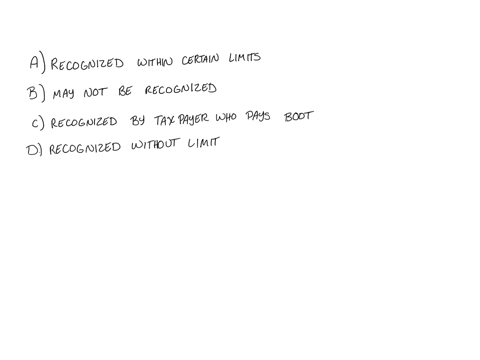 A) RECOGNIZED WITHIN CERTAIN LIMITS
B) MAY NOT BE RECOGNIZED
C) RECOGNIZED BY TAXPAYER WHO PAYS BOOT
D) RECOGNIZED WITHOUT LIMIT